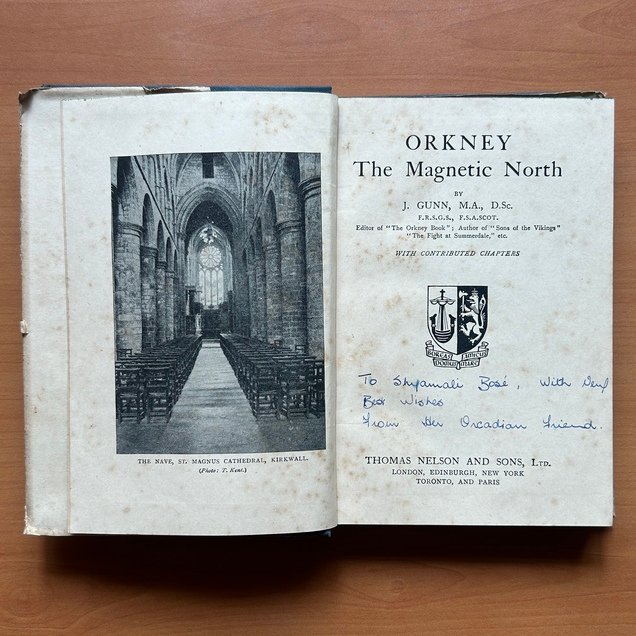 THE NAVE, ST. MAGNUS CATHEDRAL, KIRKWALL.
(Photo: T. Kent.)
ORKNEY
The Magnetic North
BY
J. GUNN, M.A., D.Sc.
F.R.S.G.S., F.S.A.SCOT.
Editor of "The Orkney Book"; Author of "Sons of the Vikings"
"The Fight at Summerdale," etc.
WITH CONTRIBUTED CHAPTERS
BOREAS DOMUS MARE AMICUS
To Shyamali Basé, With
Best Wishes
From Her Orcadian Friend.
THOMAS NELSON AND SONS, LTD.
LONDON, EDINBURGH, NEW YORK
TORONTO, AND PARIS